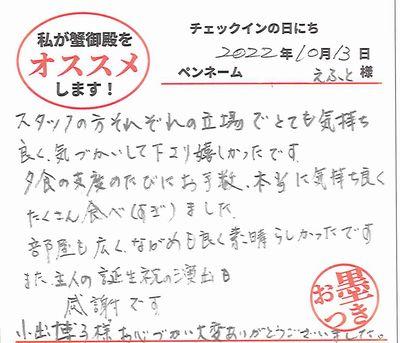 私が蟹御殿を
オススメ
します!
チェックインの日にち
2022年10月13日
ペンネーム えふと 様
スタッフの方それぞれの立場でとても気持ち
良く、気づかいして下さり嬉しかったです
夕食の支度のたびにお手数、本当に気持ち良く
たくさん食べ(すぎ)ました
お部屋も広く、ながめも良く素晴らしかったです
また、主人の誕生祝の演出も
感謝です
小出博子様お心づかい大変ありがとうございました。
お墨つき